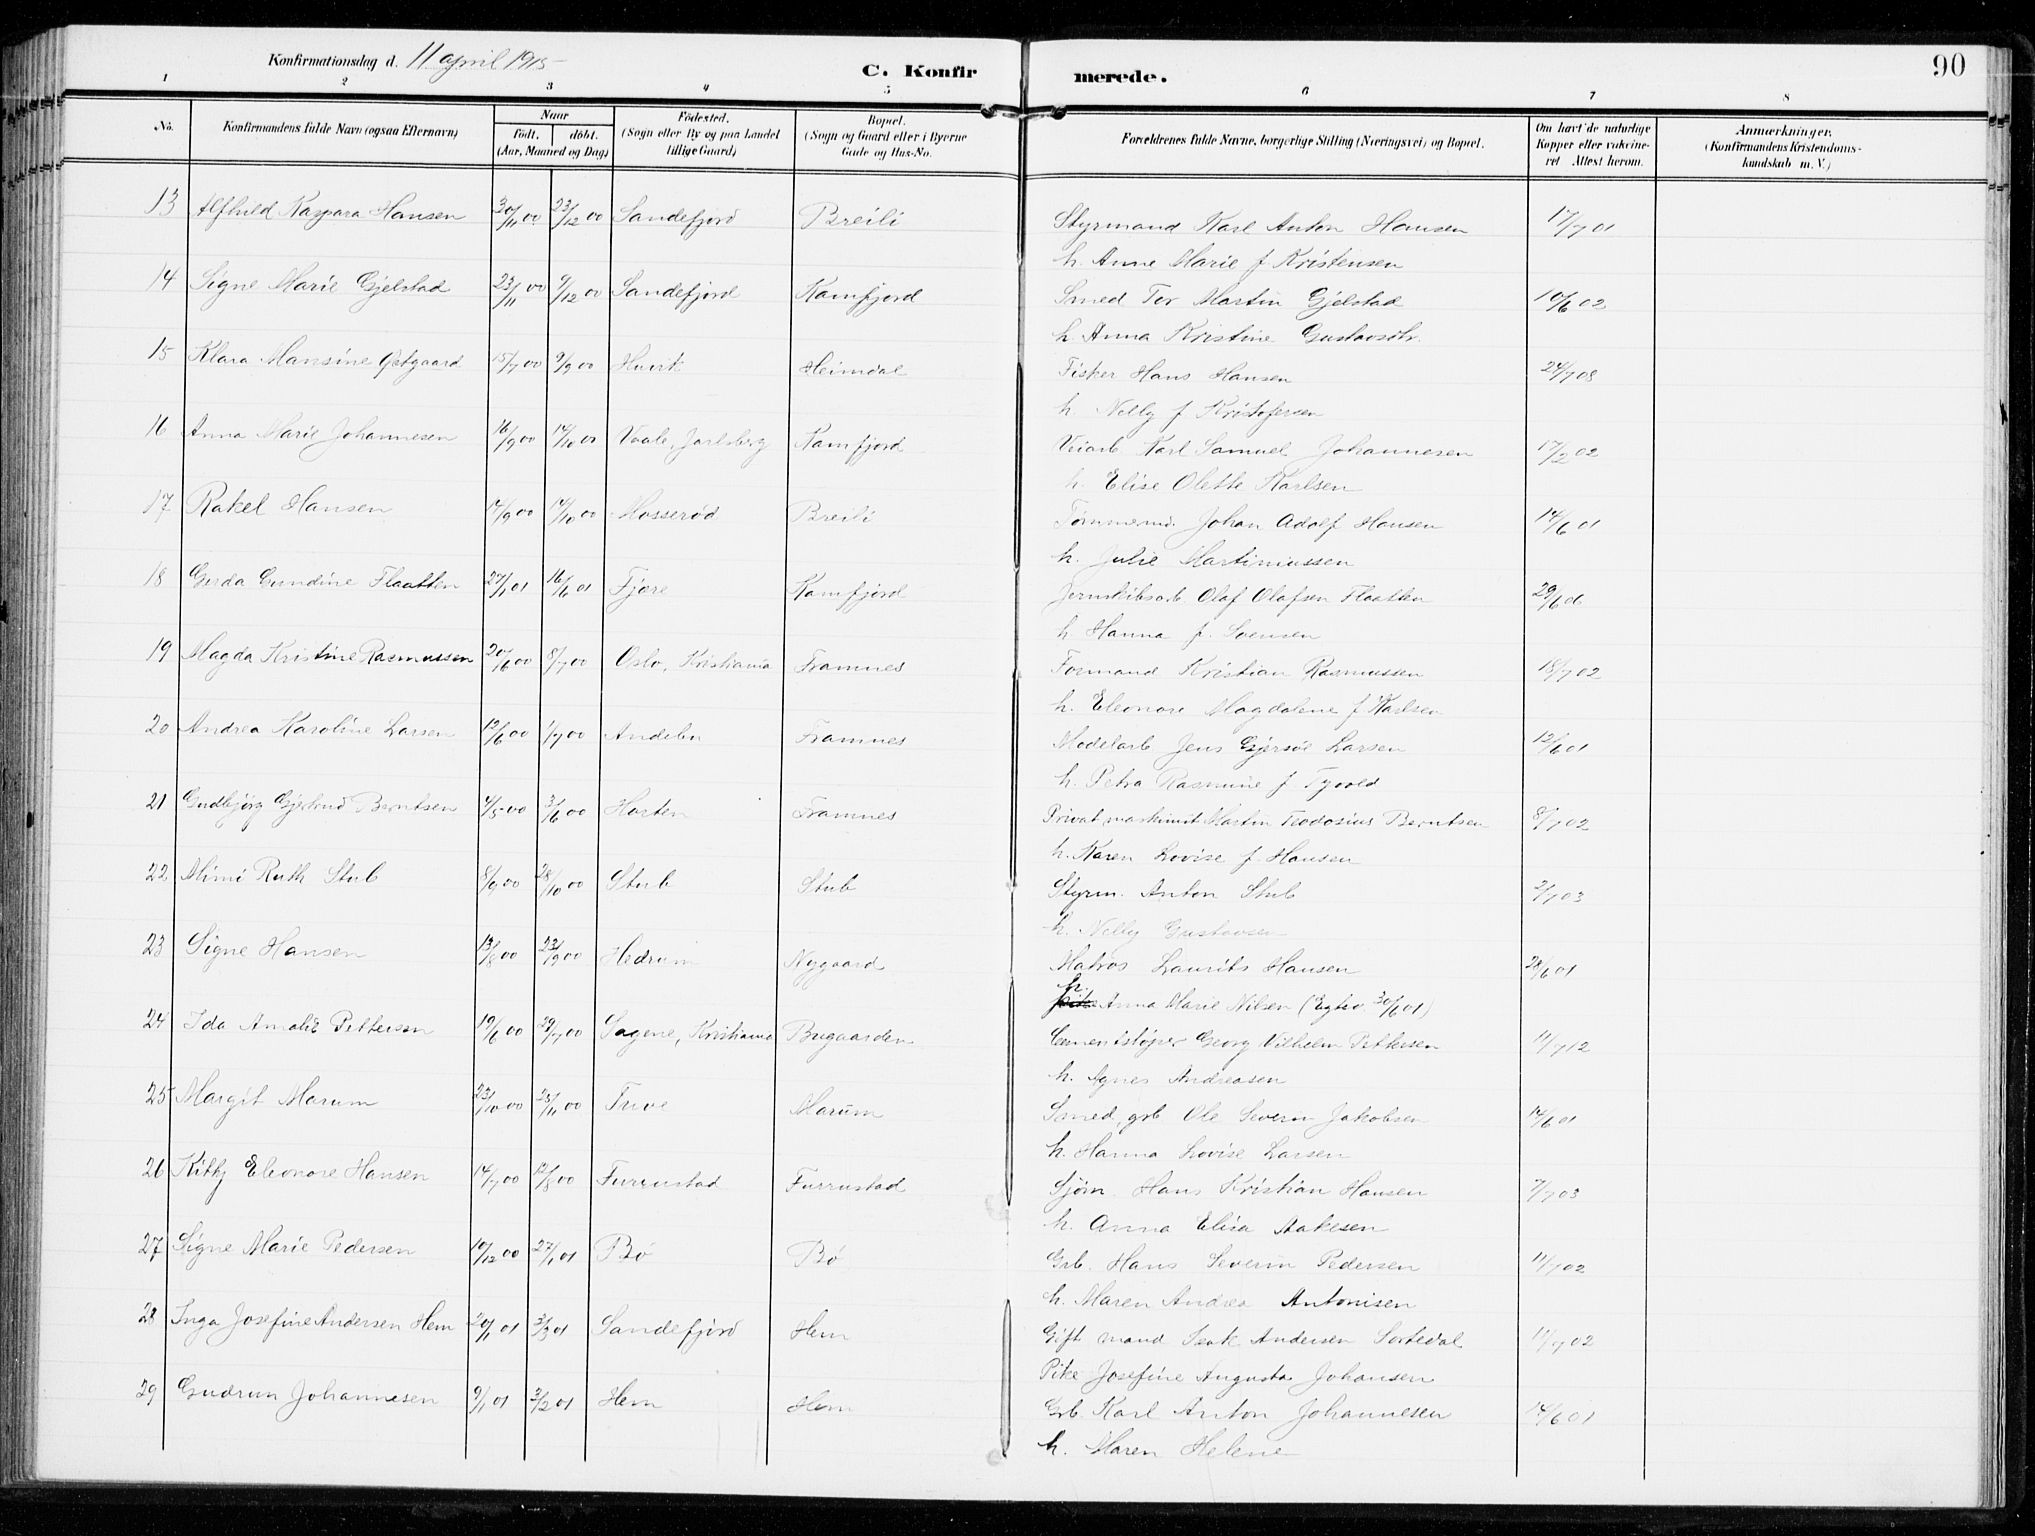 Konfirmationsdag d. 11 april 1915
C. Konfirmerede.
90
1 2 3 4 5 6 7 8
No. Konfirmandens fulde Navn (ogsaa Efternavn) Naar født. døbt. (Aar, Maaned og Dag) Fødested. (Sogn eller By og paa Landet tillige Gaard) Bopæl. (Sogn og Gaard eller i Byerne Gade og Hus-No. Forældrenes fulde Navne, borgerlige Stilling (Næringsvei) og Bopæl. Om havt de naturlige Kopper eller vakcineret Attest herom. Anmærkninger. (Konfirmandens Kristendomskundskab m. V.)
13 Alfhild Kaspara Hansen 30/11 00 23/12 00 Sandefjord Breili Styrmand Karl Anton Hansen 17/7 01
h. Anne Marie f Kristensen
14 Signe Marie Gjelstad 23/11 00 9/12 00 Sandefjord Kamfjord Smed Tor Martin Gjelstad 10/6 02
h. Anna Kristine Gustavsdtr.
15 Klara Mansine Østgaard 15/7 00 9/9 00 Huvik Heimdal Fisker Hans Hansen 24/7 08
h. Nelly f Kristofersen
16 Anna Marie Johannesen 16/9 00 14/10 00 Vaale, Jarlsberg Kamfjord Veiarb Karl Samuel Johannesen 17/2 02
h. Elise Olette Karlsen
17 Rakel Hansen 14/9 00 14/10 00 Mosserød Breili Tømmermd. Johan Adolf Hansen 14/6 01
h. Julie Martinussen
18 Gerda Gundine Flaatten 27/1 01 16/6 01 Fjære Kamfjord Jernskibsarb Olaf Olafsen Flaatten 29/6 06
h. Hanna f. Svensen
19 Magda Kristine Rasmussen 20/6 00 8/7 00 Oslo, Kristiania Framnes Formand Kristian Rasmussen 18/7 02
h. Eleonore Magdalene f Karlsen
20 Andrea Karoline Larsen 12/6 00 1/7 00 Andebu Framnes Modelarb Jens Gjersøe Larsen 12/6 01
h. Petra Rasmine f.
21 Gudbjørg Gjertrud Berntsen 4/5 00 3/6 00 Horten Framnes Privat maskinist Martin Teodosius Berntsen 8/7 02
h. Karen Lovise f. Hansen
22 Mimi Ruth Stub 8/9 00 28/10 00 Stub Stub Styrm. Anton Stub 2/7 03
h. Nelly Gustavsen
23 Signe Hansen 13/8 00 23/9 00 Hedrum Nygaard Matros Laurits Hansen 28/6 01
h. Anna Marie Nilsen (Egtev. 30/6 01)
24 Ida Amalie Pettersen 19/6 00 29/7 00 Sagene, Kristiania Bugaarden Cementstøper Georg Vilhelm Pettersen 11/7 12
h. Agnes Andreasen
25 Margit Marum 23/10 00 25/11 00 Marum Smed, grb. Ole Severin Jakobsen 14/6 01
h. Hanna Lovise Larsen
26 Kitty Eleonore Hansen 14/7 00 12/8 00 Furrustad Furrustad Sjøm. Hans Kristian Hansen 7/7 03
h. Anna Elisa Aakesen
27 Signe Marie Pedersen 10/12 00 27/1 01 Bø Bø Grb. Hans Severin Pedersen 11/7 02
h. Maren Andrea Antonisen
28 Inga Josefine Andersen Hem 20/1 01 3/3 01 Sandefjord Hem Gift mand Isak Andersen Sortedal 11/7 02
Pike Josefine Augusta Johansen
29 Gudrun Johannesen 9/1 01 3/2 01 Hem Hem Grb. Karl Anton Johannesen 14/6 01
h. Maren Helene